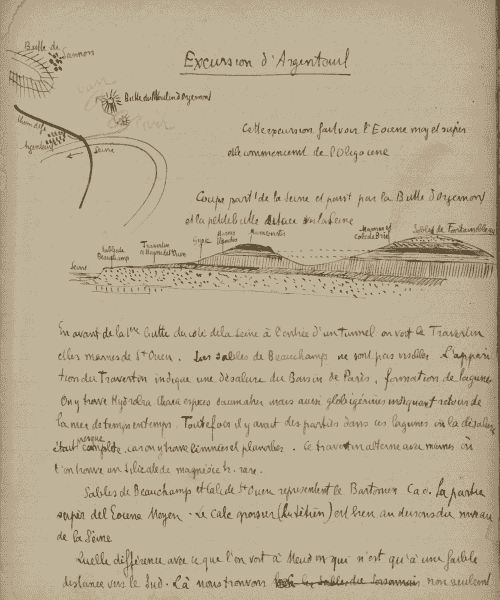 Excursion d'Argenteuil
Butte de Sannois
Butte du Moulin d'Orgemont
Chem de fer
Argenteuil
Seine
Cette excursion fait voir l'Eocene moy et super
et le commencemt de l'Oligocene
Coupe partt de la Seine et passt par la Butte d'Orgemont
et la petite butte située sur la Seine
Seine
Sables de Beauchamp
Travertin
Gypse
Marnes
Marnes et
calc de Brie
Sables de Fontainebleau
En avant de la 1ère butte du coté de la Seine à l'entrée d'un tunnel on voit le Travertin
et les marnes de St Ouen. Les sables de Beauchamps ne sont pas visibles. L'appari
tion du Travertin indique une désalure du Bassin de Paris, formation de lagunes
On y trouve Hydrobia Chara espèces saumatres mais aussi globigérines indiquant retours de
la mer de temps en temps. Toutefois il y avait des parties dans ces lagunes où la désalure
était presque complète, car on y trouve limnées et planorbes. Ce travertin alterne avec marnes où
l'on trouve un silicate de magnésie tr. rare.
Sables de Beauchamp et Calc de St Ouen representent le Bartonien. C a d. la partie
super del Eocene Moyen. Le Calc grossier (Lutétien) est bien au dessous du niveau
de la Seine
Quelle différence avec ce que l'on voit à Meudon qui n'est qu'à une faible
distance vers le Sud. Là nous trouvons non seulement